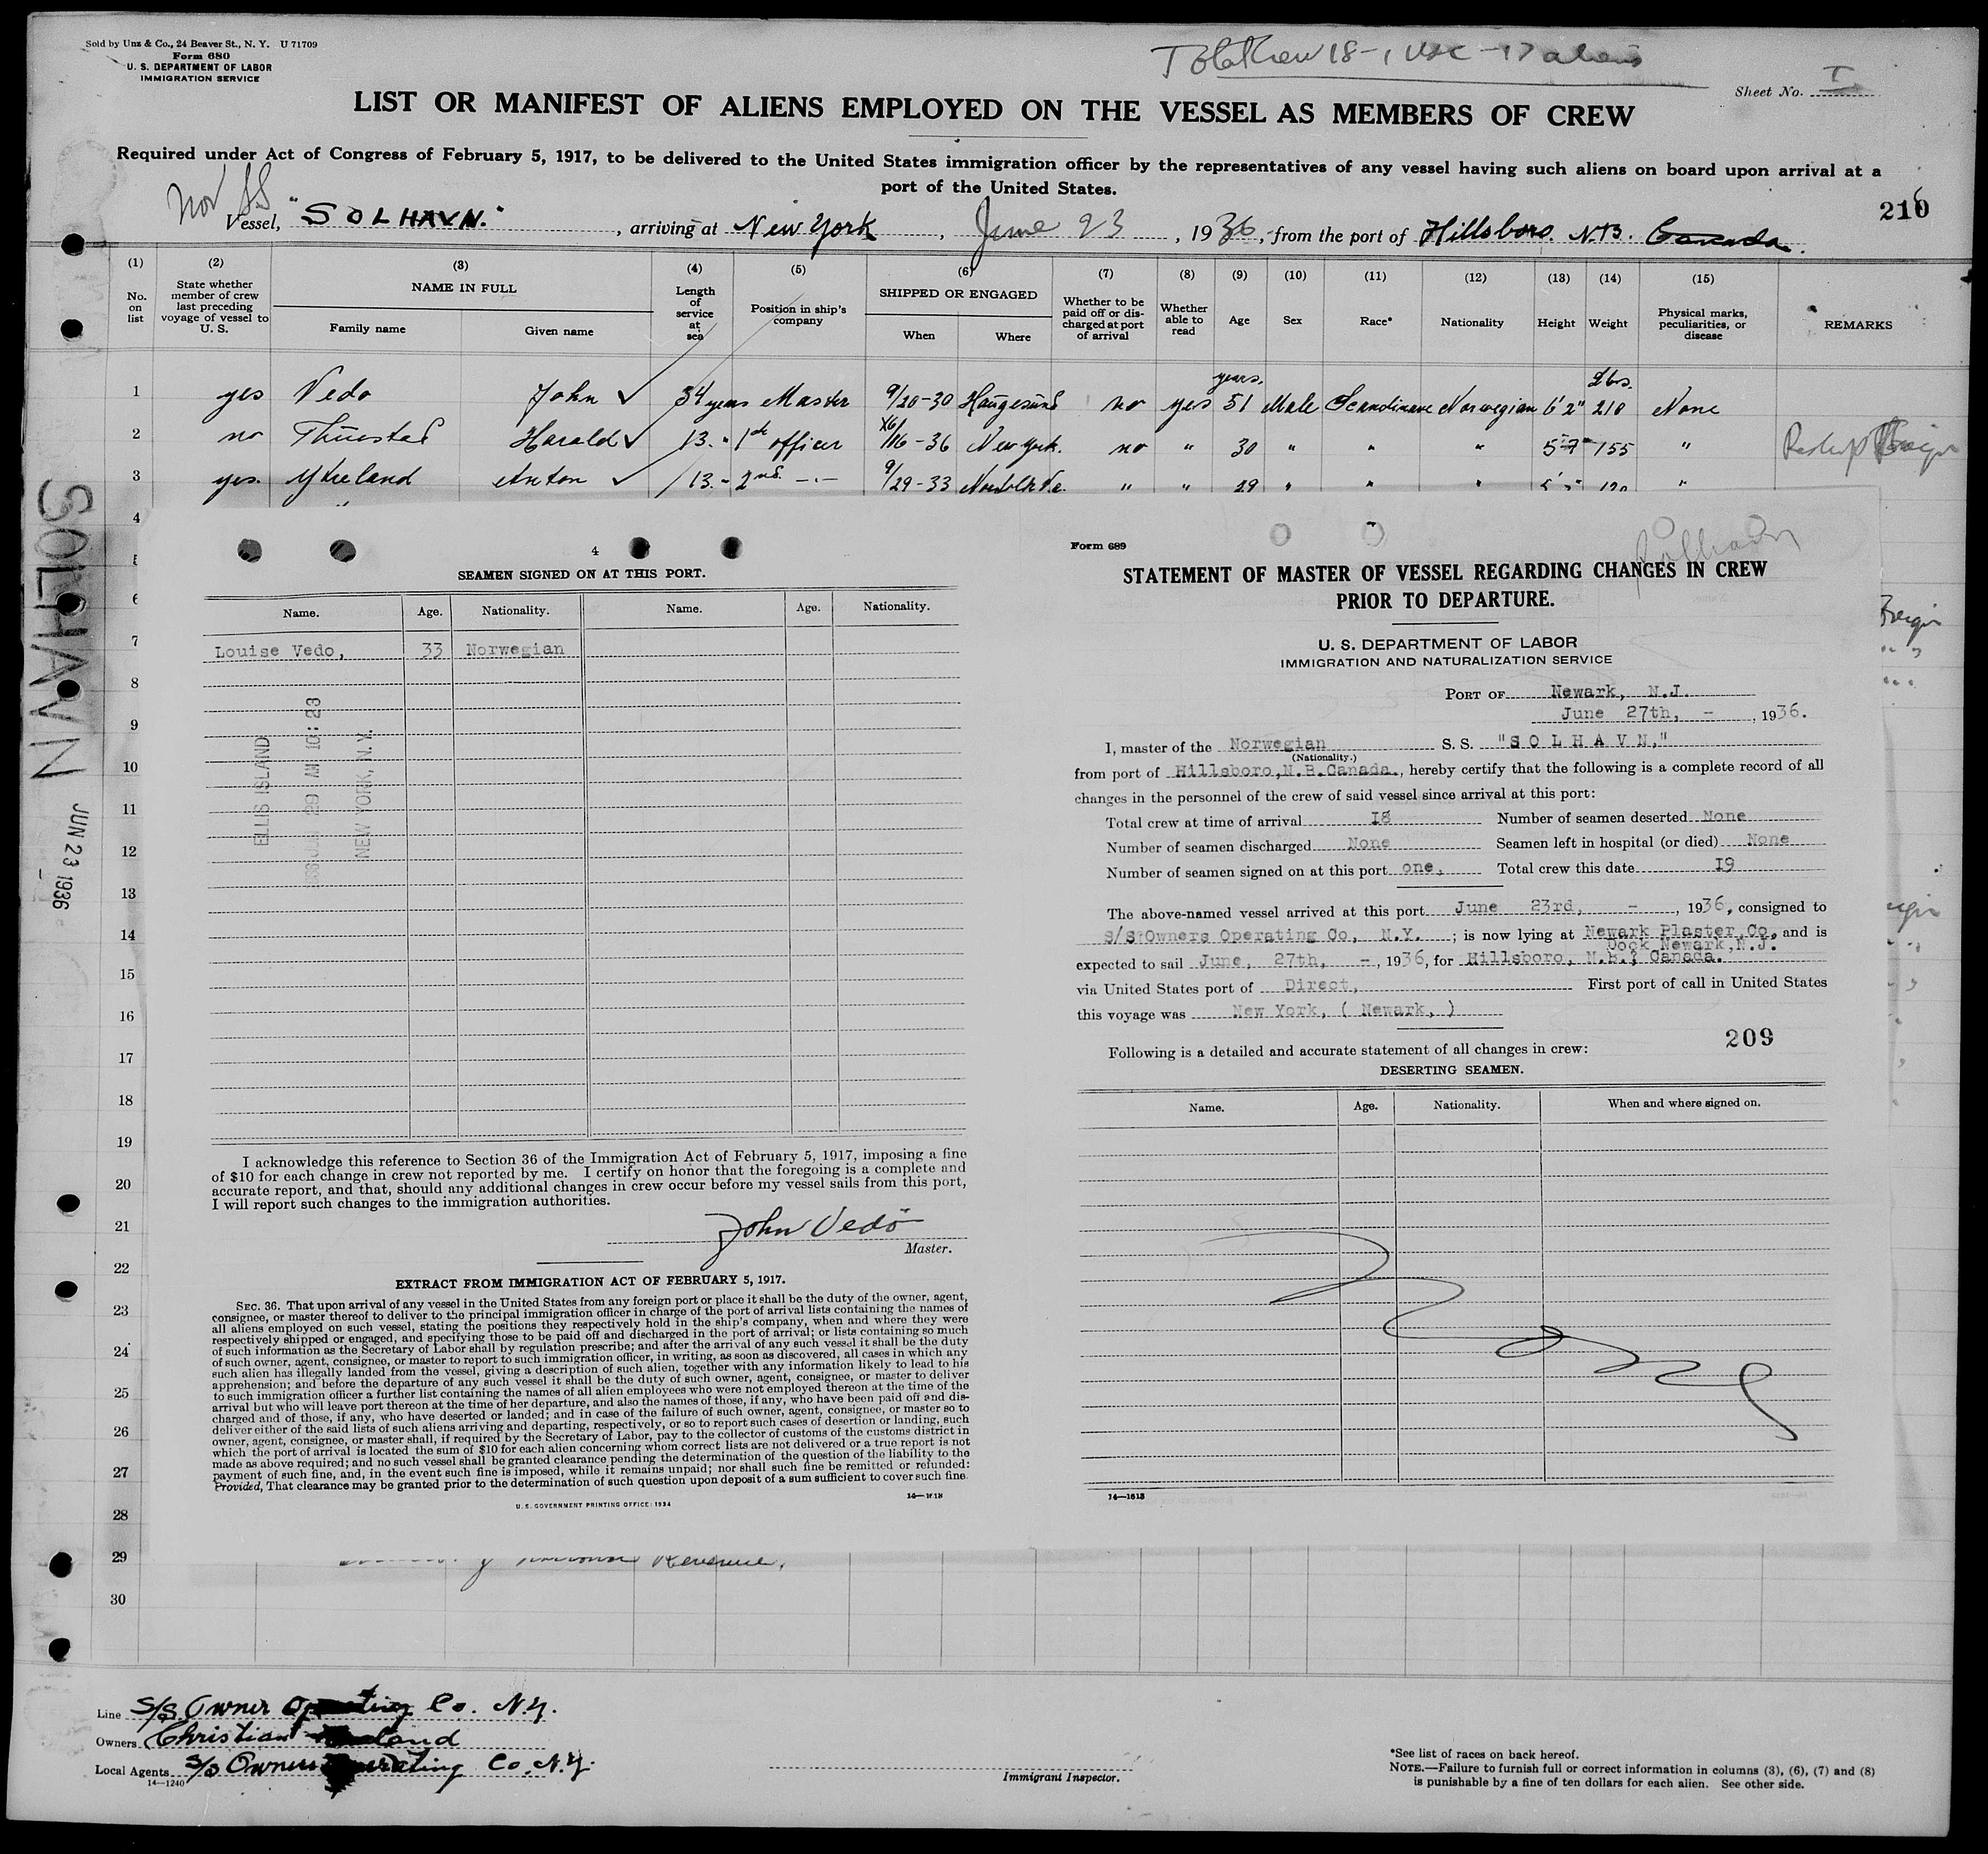 Sold by Unz & Co., 24 Beaver St., N. Y. U 71709
Form 680
U. S. DEPARTMENT OF LABOR
IMMIGRATION SERVICE
Total Crew 18 - 1 USC - 17 aliens
Sheet No. I
LIST OR MANIFEST OF ALIENS EMPLOYED ON THE VESSEL AS MEMBERS OF CREW
Required under Act of Congress of February 5, 1917, to be delivered to the United States immigration officer by the representatives of any vessel having such aliens on board upon arrival at a
port of the United States.
Nor SS
Vessel, "SOLHAVN." , arriving at New York , June 23 , 1936, from the port of Hillsboro. N.B. Canada.
210
(1) (2) (3) (4) (5) (6) (7) (8) (9) (10) (11) (12) (13) (14) (15)
No. on list
State whether member of crew last preceding voyage of vessel to U. S.
NAME IN FULL
Family name Given name
Length of service at sea
Position in ship's company
SHIPPED OR ENGAGED
When Where
Whether to be paid off or discharged at port of arrival
Whether able to read
Age
Sex
Race*
Nationality
Height
Weight
Physical marks, peculiarities, or disease
REMARKS
years. Lbs.
1 yes Vedo John ✓ 34 years Master 9/20-30 Haugesund no yes 51 Male Scandinave Norwegian 6'2" 210 None
2 no Harald ✓ 13 " 1st officer 16-36 New York. no " 30 " " " 5-7" 155 "
3 yes. Anton ✓ 13 - 2nd -"- 9/29-33 " " 29 " " " "
4
5
6
7
8
9
10
11
12
13
14
15
16
17
18
19
20
21
22
23
24
25
26
27
28
29
30
SOLHAVN
JUN 23 1936
4
SEAMEN SIGNED ON AT THIS PORT.
Name. Age. Nationality. Name. Age. Nationality.
Louise Vedo, 33 Norwegian
ELLIS ISLAND
JUN 29 AM 10:23
NEW YORK, N. Y.
I acknowledge this reference to Section 36 of the Immigration Act of February 5, 1917, imposing a fine
of $10 for each change in crew not reported by me. I certify on honor that the foregoing is a complete and
accurate report, and that, should any additional changes in crew occur before my vessel sails from this port,
I will report such changes to the immigration authorities.
John Vedo
Master.
EXTRACT FROM IMMIGRATION ACT OF FEBRUARY 5, 1917.
SEC. 36. That upon arrival of any vessel in the United States from any foreign port or place it shall be the duty of the owner, agent,
consignee, or master thereof to deliver to the principal immigration officer in charge of the port of arrival lists containing the names of
all aliens employed on such vessel, stating the positions they respectively hold in the ship's company, when and where they were
respectively shipped or engaged, and specifying those to be paid off and discharged in the port of arrival; or lists containing so much
of such information as the Secretary of Labor shall by regulation prescribe; and after the arrival of any such vessel it shall be the duty
of such owner, agent, consignee, or master to report to such immigration officer, in writing, as soon as discovered, all cases in which any
such alien has illegally landed from the vessel, giving a description of such alien, together with any information likely to lead to his
apprehension; and before the departure of any such vessel it shall be the duty of such owner, agent, consignee, or master to deliver
to such immigration officer a further list containing the names of all alien employees who were not employed thereon at the time of the
arrival but who will leave port thereon at the time of her departure, and also the names of those, if any, who have been paid off and dis-
charged and of those, if any, who have deserted or landed; and in case of the failure of such owner, agent, consignee, or master so to
deliver either of the said lists of such aliens arriving and departing, respectively, or so to report such cases of desertion or landing, such
owner, agent, consignee, or master shall, if required by the Secretary of Labor, pay to the collector of customs of the customs district in
which the port of arrival is located the sum of $10 for each alien concerning whom correct lists are not delivered or a true report is not
made as above required; and no such vessel shall be granted clearance pending the determination of the question of the liability to the
payment of such fine, and, in the event such fine is imposed, while it remains unpaid; nor shall such fine be remitted or refunded:
Provided, That clearance may be granted prior to the determination of such question upon deposit of a sum sufficient to cover such fine.
U. S. GOVERNMENT PRINTING OFFICE: 1934
Form 689
Solhavn
STATEMENT OF MASTER OF VESSEL REGARDING CHANGES IN CREW
PRIOR TO DEPARTURE.
U. S. DEPARTMENT OF LABOR
IMMIGRATION AND NATURALIZATION SERVICE
PORT OF Newark, N.J.
June 27th, - , 1936.
I, master of the Norwegian S. S. "S O L H A V N,"
(Nationality.)
from port of Hillsboro,N.B.Canada., hereby certify that the following is a complete record of all
changes in the personnel of the crew of said vessel since arrival at this port:
Total crew at time of arrival I8 Number of seamen deserted None
Number of seamen discharged None Seamen left in hospital (or died) None
Number of seamen signed on at this port one, Total crew this date I9
The above-named vessel arrived at this port June 23rd, - , 1936, consigned to
S/S Owners Operating Co, N.Y. ; is now lying at Newark Plaster Co, and is
Dock Newark,N.J.
expected to sail June, 27th, -, 1936, for Hillsboro, N.B., Canada.
via United States port of Direct, First port of call in United States
this voyage was New York, ( Newark, )
209
Following is a detailed and accurate statement of all changes in crew:
DESERTING SEAMEN.
Name. Age. Nationality. When and where signed on.
None
14—1613
Revenue.
Line S/S. Owner Operating Co. N.Y.
Owners Christian
Local Agents S/S Owners Operating Co. N.Y.
14—1240
Immigrant Inspector.
*See list of races on back hereof.
NOTE.—Failure to furnish full or correct information in columns (3), (6), (7) and (8)
is punishable by a fine of ten dollars for each alien. See other side.